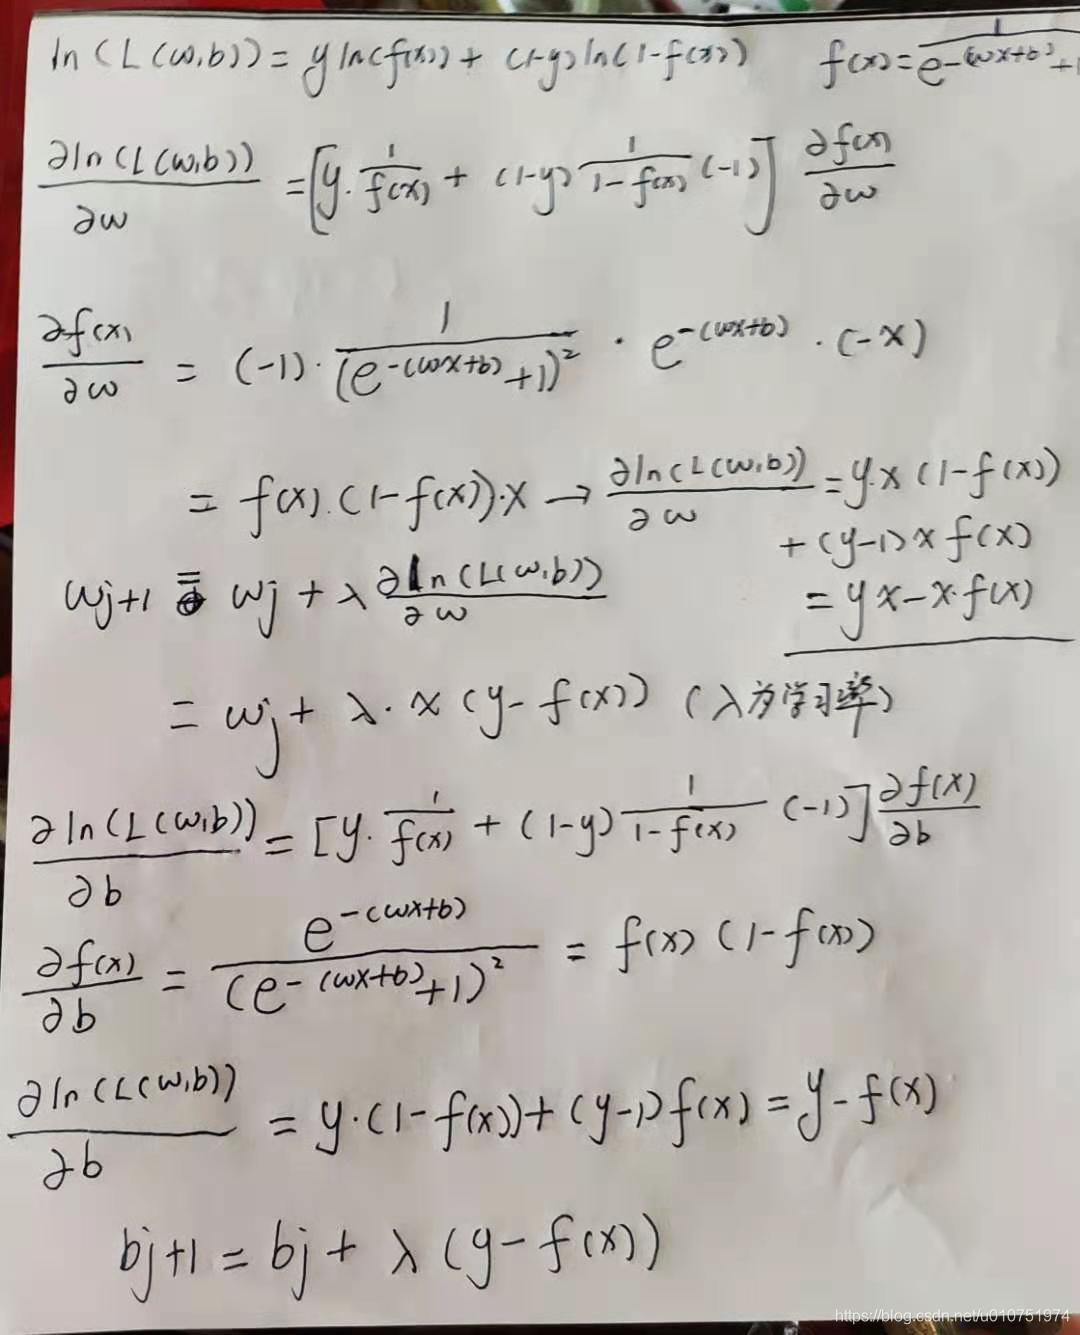 ln(L(w,b)) = y ln(f(x)) + (1-y) ln(1-f(x))    f(x) = 1/(e^{-(wx+b)}+1
∂ln(L(w,b))/∂w = [y·1/f(x) + (1-y) 1/(1-f(x)) (-1)] ∂f(x)/∂w
∂f(x)/∂w = (-1)·1/(e^{-(wx+b)}+1)² · e^{-(wx+b)} · (-x)
= f(x)·(1-f(x))·x → ∂ln(L(w,b))/∂w = y·x(1-f(x))
+ (y-1)x f(x)
w_{j+1} = w_j + λ ∂ln(L(w,b))/∂w
= yx - x·f(x)
= w_j + λ·x(y-f(x)) (λ为学习率)
∂ln(L(w,b))/∂b = [y·1/f(x) + (1-y) 1/(1-f(x)) (-1)] ∂f(x)/∂b
∂f(x)/∂b = e^{-(wx+b)}/(e^{-(wx+b)}+1)² = f(x)(1-f(x))
∂ln(L(w,b))/∂b = y·(1-f(x)) + (y-1)f(x) = y-f(x)
b_{j+1} = b_j + λ(y-f(x))
https://blog.csdn.net/u010751974